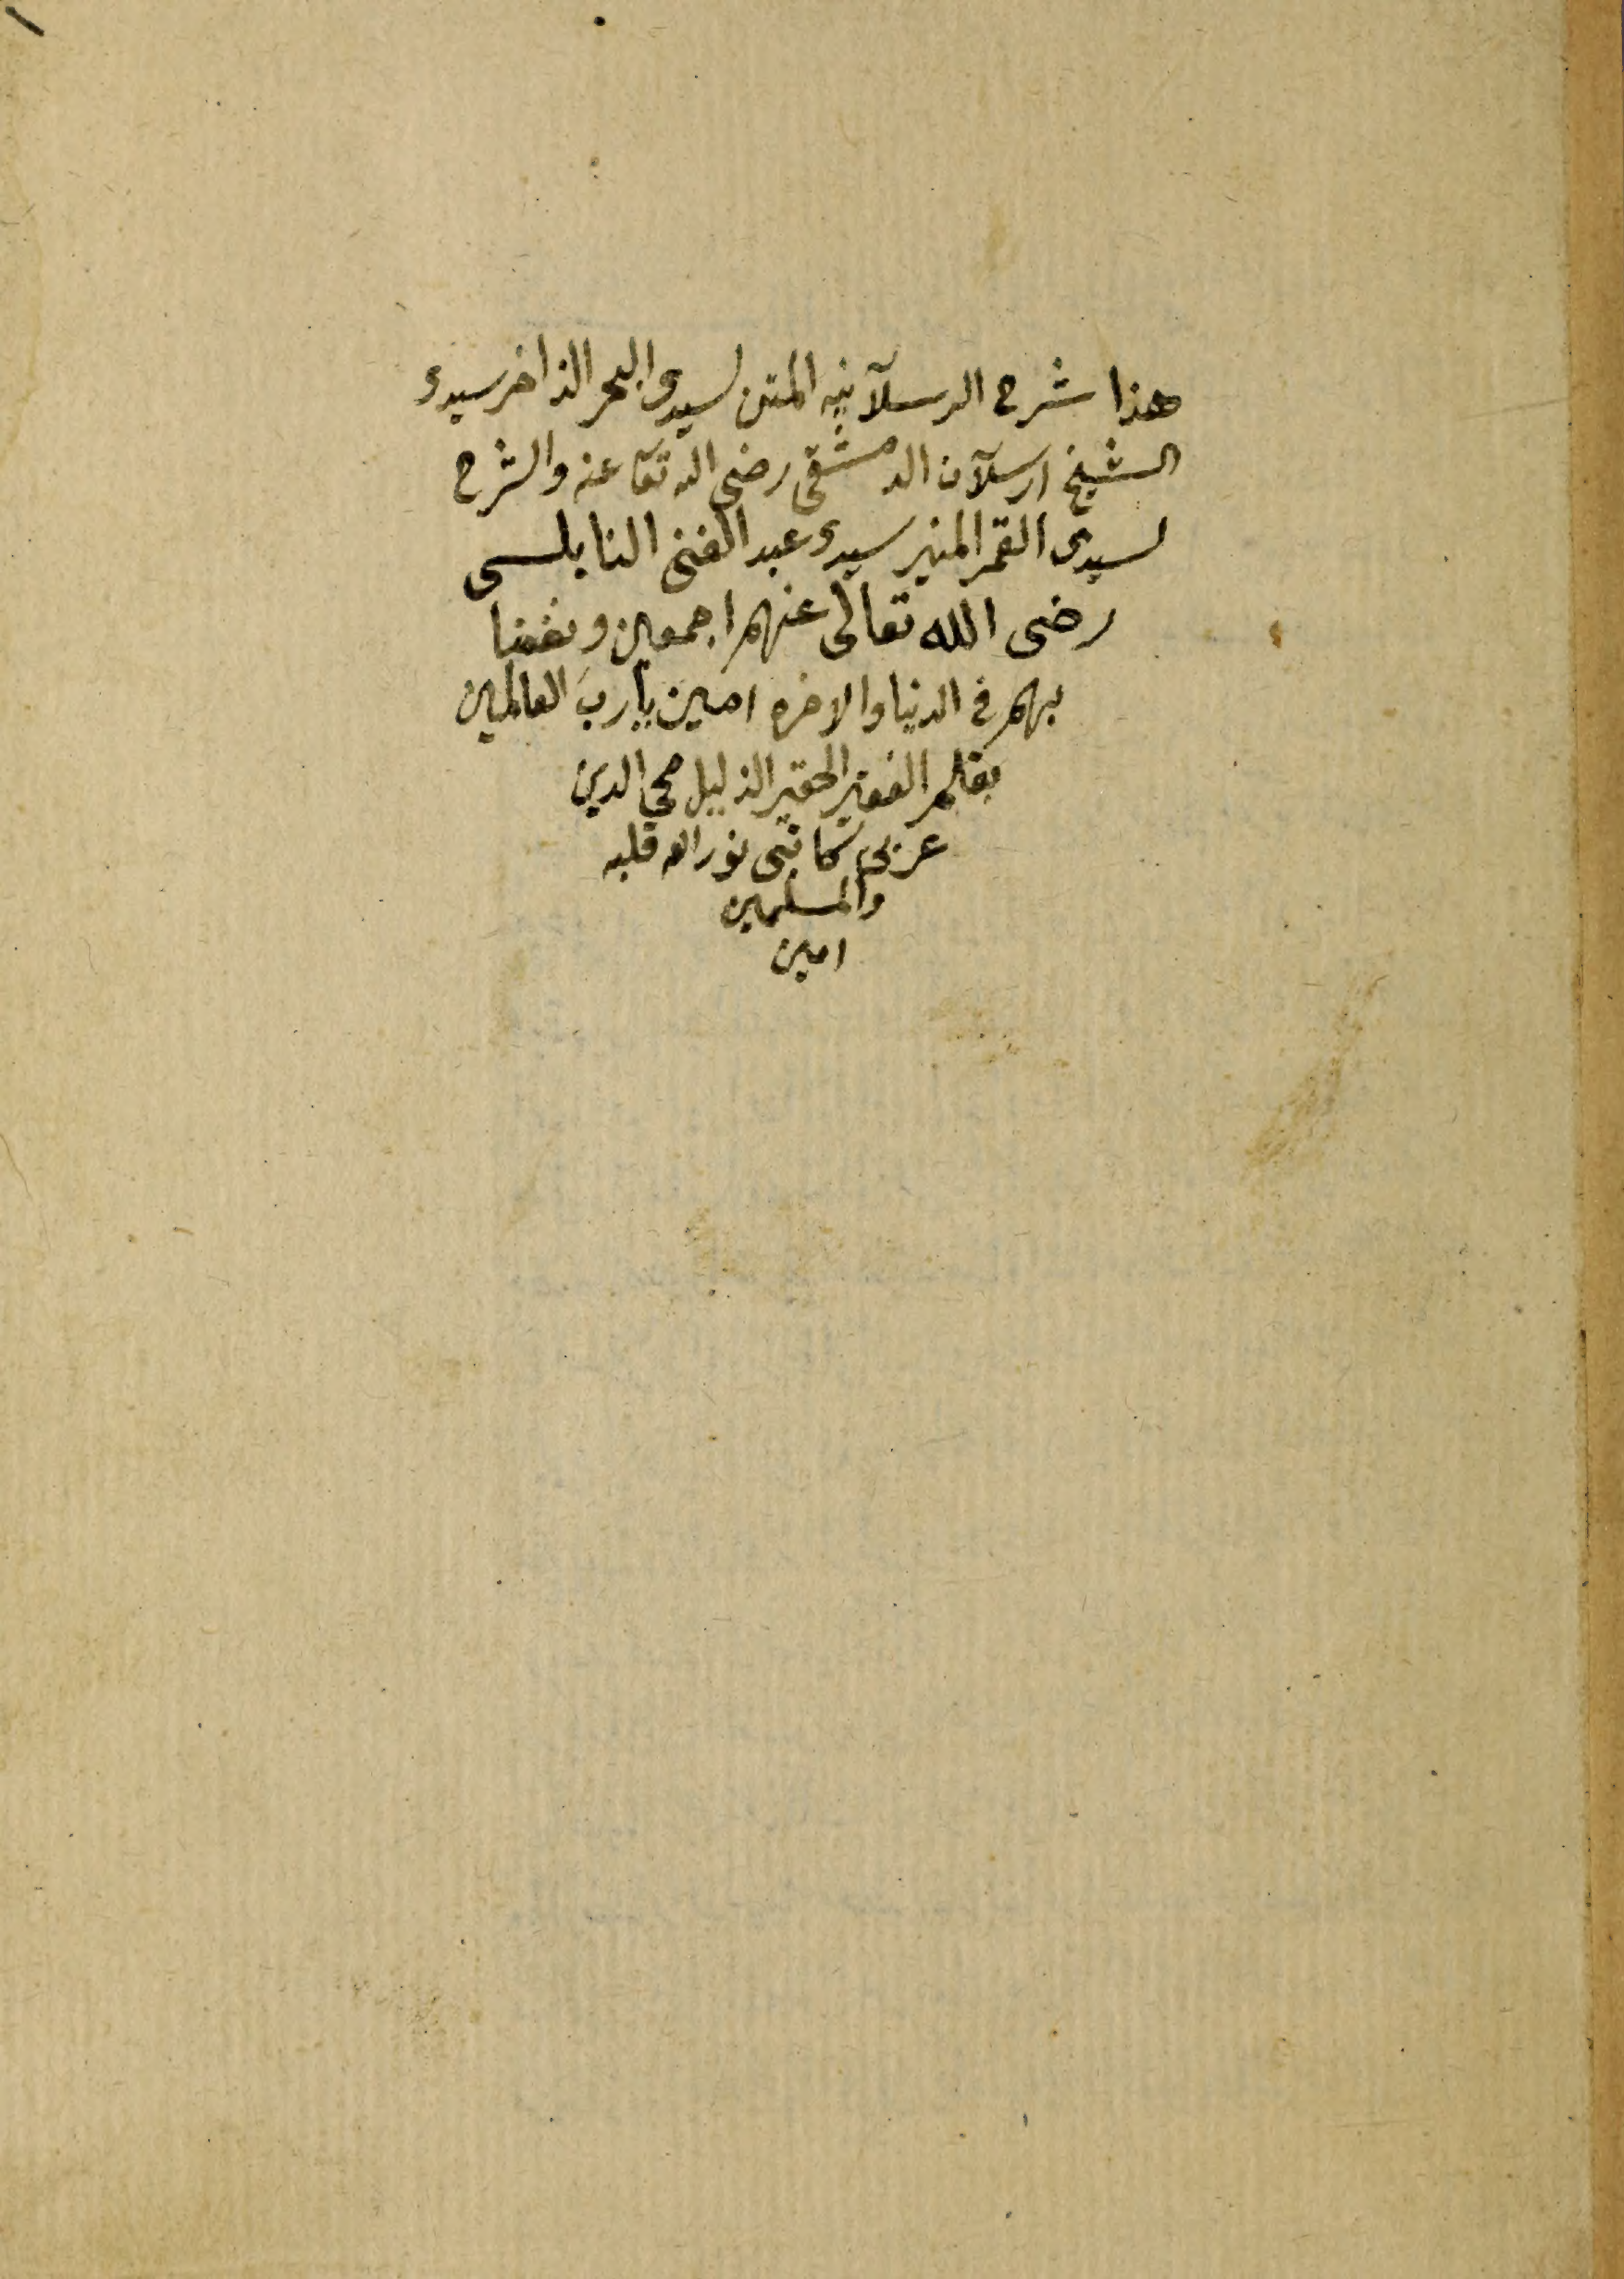 هذا شرح الرسلآنيه المتن لسيدى البحر الذاخر سيدى
الشيخ ارسلآن الدمشقى رضى الله تعا عنه والشرح
لسيدى القمر المنير سيدى عبد الغنى النابلسى
رضى الله تعالى عنهم اجمعين ونفعنا
بهم فى الدنيا والاخره امين يا رب العالمين
بقلم الفقير الحقير الذليل محى الدين
عربى نور الله قلبه
والمسلمين
امين